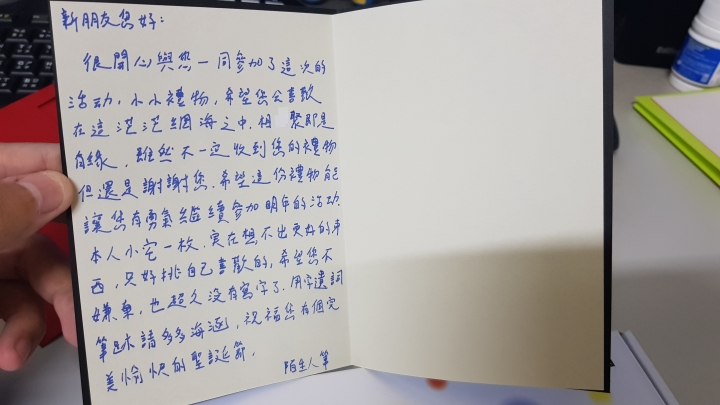 新朋友您好：
很開心與您一同參加了這次的
活动，小小禮物，希望您会喜歡
在這茫茫網海之中，相聚即是
有緣，雖然不一定收到您的禮物
但還是謝謝您，希望這份禮物能
讓您有勇氣繼續參加明年的活动，
本人小宅一枚，实在想不出更好的东
西，只好挑自己喜歡的，希望您不
嫌棄，也超久没有寫字了，用字遺詞
筆跡請多多海涵，祝福您有個完
美愉快的聖誕節，
陌生人筆